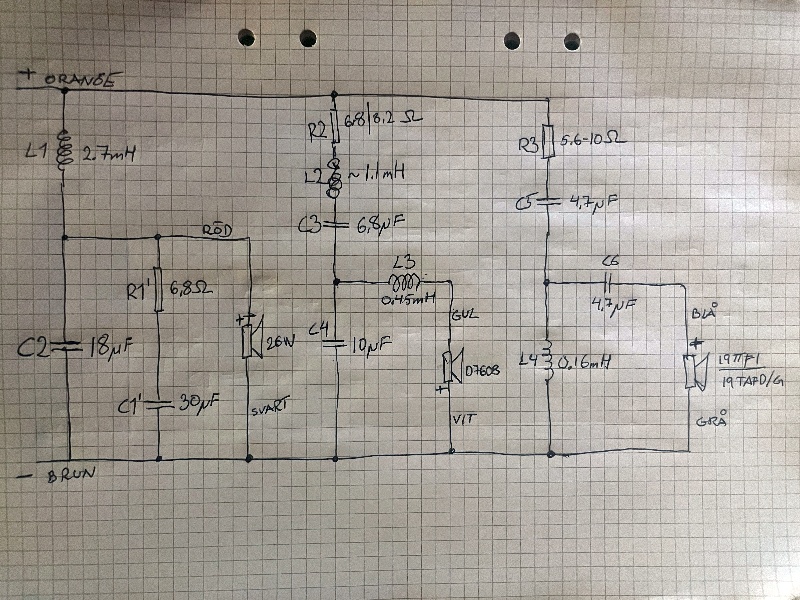 + ORANGE
L1
2.7mH
R2
6.8/8.2 Ω
L2
~1.1mH
C3
6,8µF
R3
5.6-10Ω
C5
4,7µF
RÖD
R1'
6,8Ω
L3
0.45mH
C6
4,7µF
C2
18µF
+
26W
C4
10µF
GUL
D7608
+
L4
0.16mH
BLÅ
+
19TAFD/G
C1'
30µF
SVART
VIT
GRÅ
- BRUN